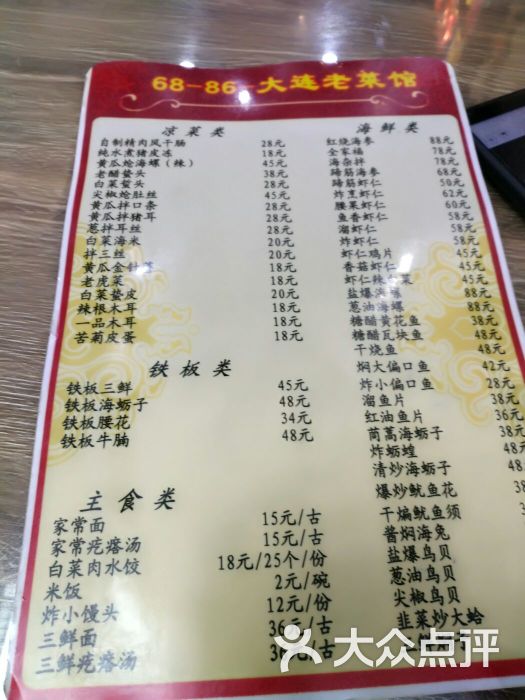 68-86 大连老菜馆
凉菜类
自制精肉风干肠 28元
纯水煮猪皮冻 18元
黄瓜炝海螺（辣） 45元
老醋蜇头 38元
白菜蜇头 45元
尖椒炝肚丝 45元
黄瓜拌口条 28元
黄瓜拌猪耳 28元
葱拌耳丝 28元
白菜海米 20元
拌三丝 20元
黄瓜金针 18元
老虎菜 18元
白菜蜇皮 20元
辣根木耳 18元
一品木耳 18元
苦菊皮蛋 18元
铁板类
铁板三鲜 45元
铁板海蛎子 48元
铁板腰花 34元
铁板牛腩 48元
主食类
家常面 15元/古
家常疙瘩汤 15元/古
白菜肉水饺 18元/25个/份
米饭 2元/碗
炸小馒头 12元/份
三鲜面 36元/古
三鲜疙瘩汤 元/古
海鲜类
红烧海参 88元
全家福 78元
海杂拌 78元
蹄筋海参 68元
蹄筋虾仁 50元
炸烹虾仁 62元
腰果虾仁 60元
鱼香虾仁 58元
溜虾仁 58元
炸虾仁 58元
虾仁鸡片 45元
香菇虾仁 45元
虾仁辣白菜 45元
盐爆海螺 88元
葱油海螺 88元
糖醋黄花鱼 38元
糖醋瓦块鱼 38元
干烧鱼
焖大偏口鱼 42元
炸小偏口鱼 28元
溜鱼片 38元
红油鱼片
茼蒿海蛎子
炸蛎蝗
清炒海蛎子
爆炒鱿鱼花
干煸鱿鱼须
酱焖海兔
盐爆鸟贝
葱油鸟贝
尖椒鸟贝
韭菜炒大蛤
大众点评